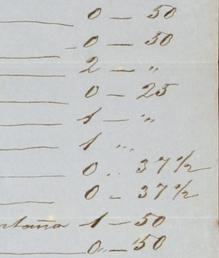 0 — 50
0 — 50
2 — „
0 — 25
1 — „
1 „
0 . 37 1/2
0 - 37 1/2
1 — 50
0 — 50